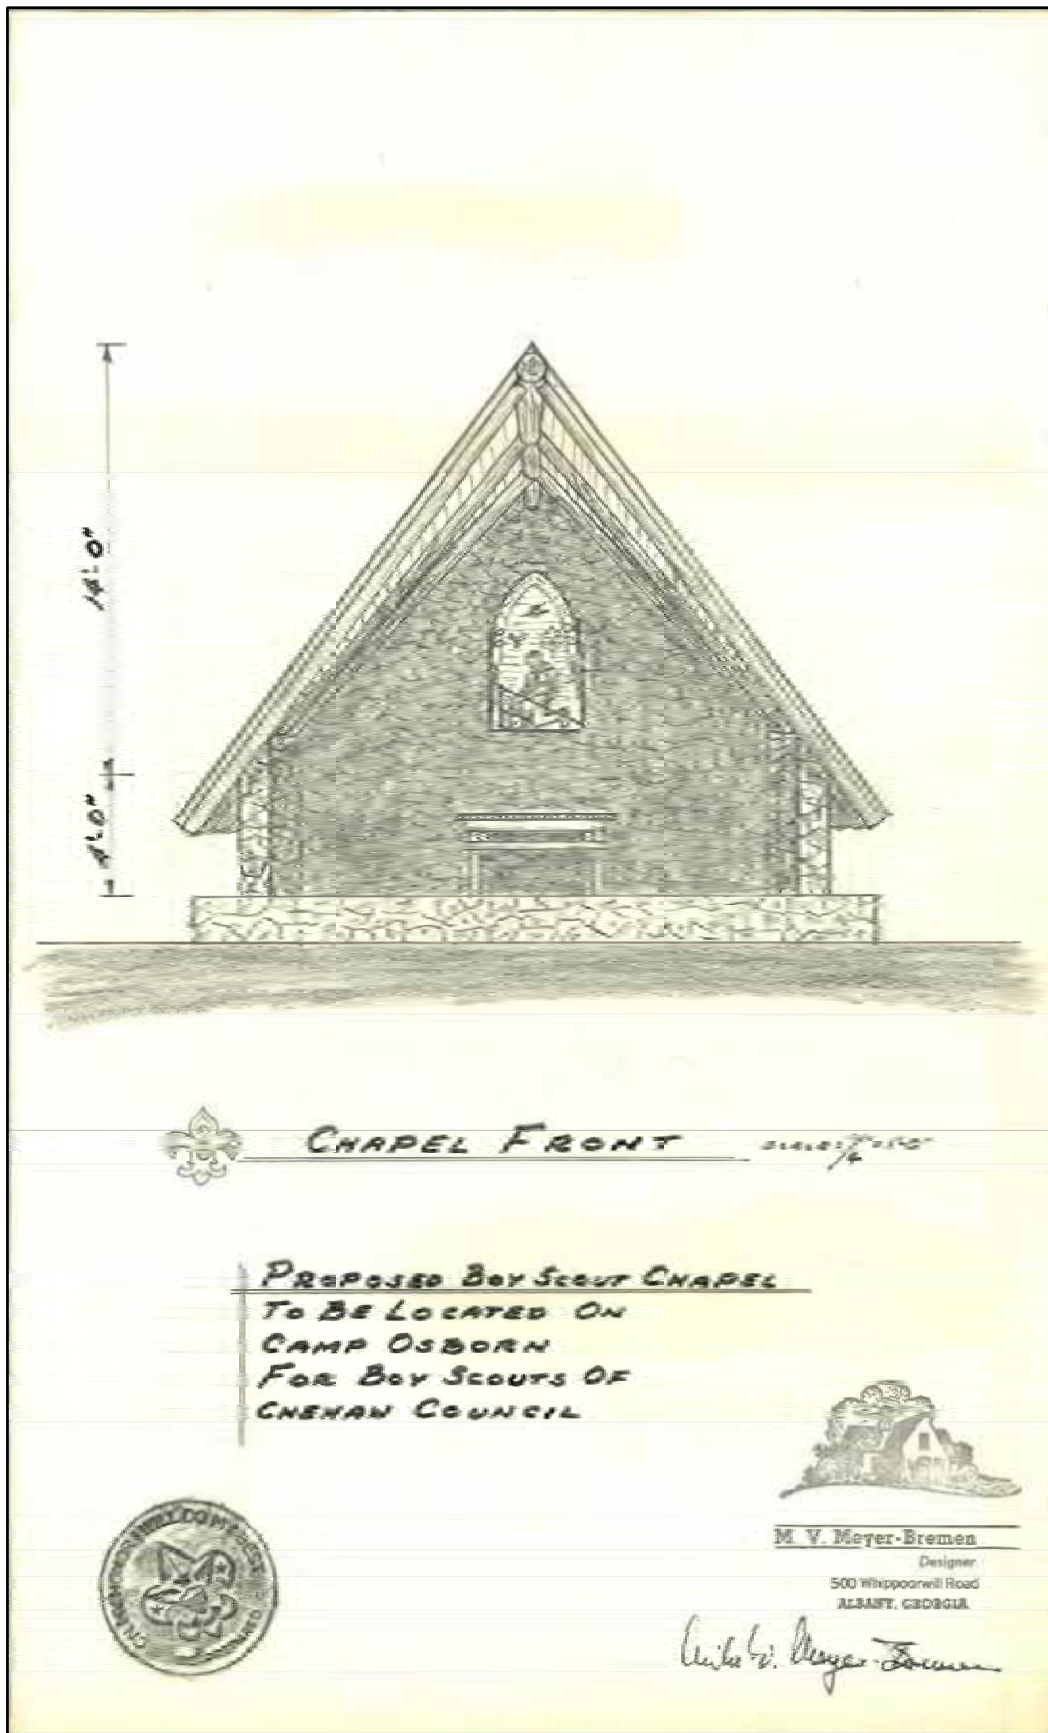 14'-0"
4'-0"
CHAPEL FRONT
PROPOSED BOY SCOUT CHAPEL
TO BE LOCATED ON
CAMP OSBORN
FOR BOY SCOUTS OF
CHEHAW COUNCIL
M. V. Meyer-Bremen
Designer
500 Whippoorwill Road
ALBANY, GEORGIA
ON MY HONOR I WILL DO MY BEST
Meyer-Bremen